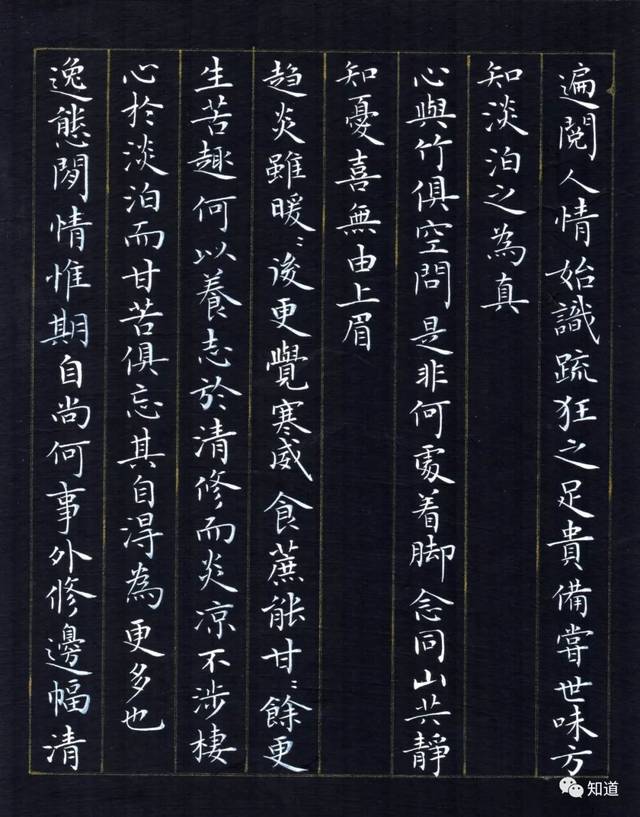 遍閱人情始識疏狂之足貴備嘗世味方
知淡泊之為真
心與竹俱空問是非何處着脚念同山共靜
知憂喜無由上眉
趋炎雖暖〻後更覺寒威食蔗能甘〻餘更
生苦趣何以養志於清修而炎凉不涉棲
心於淡泊而甘苦俱忘其自淂為更多也
逸態閒情惟期自尚何事外修邊幅清
知道